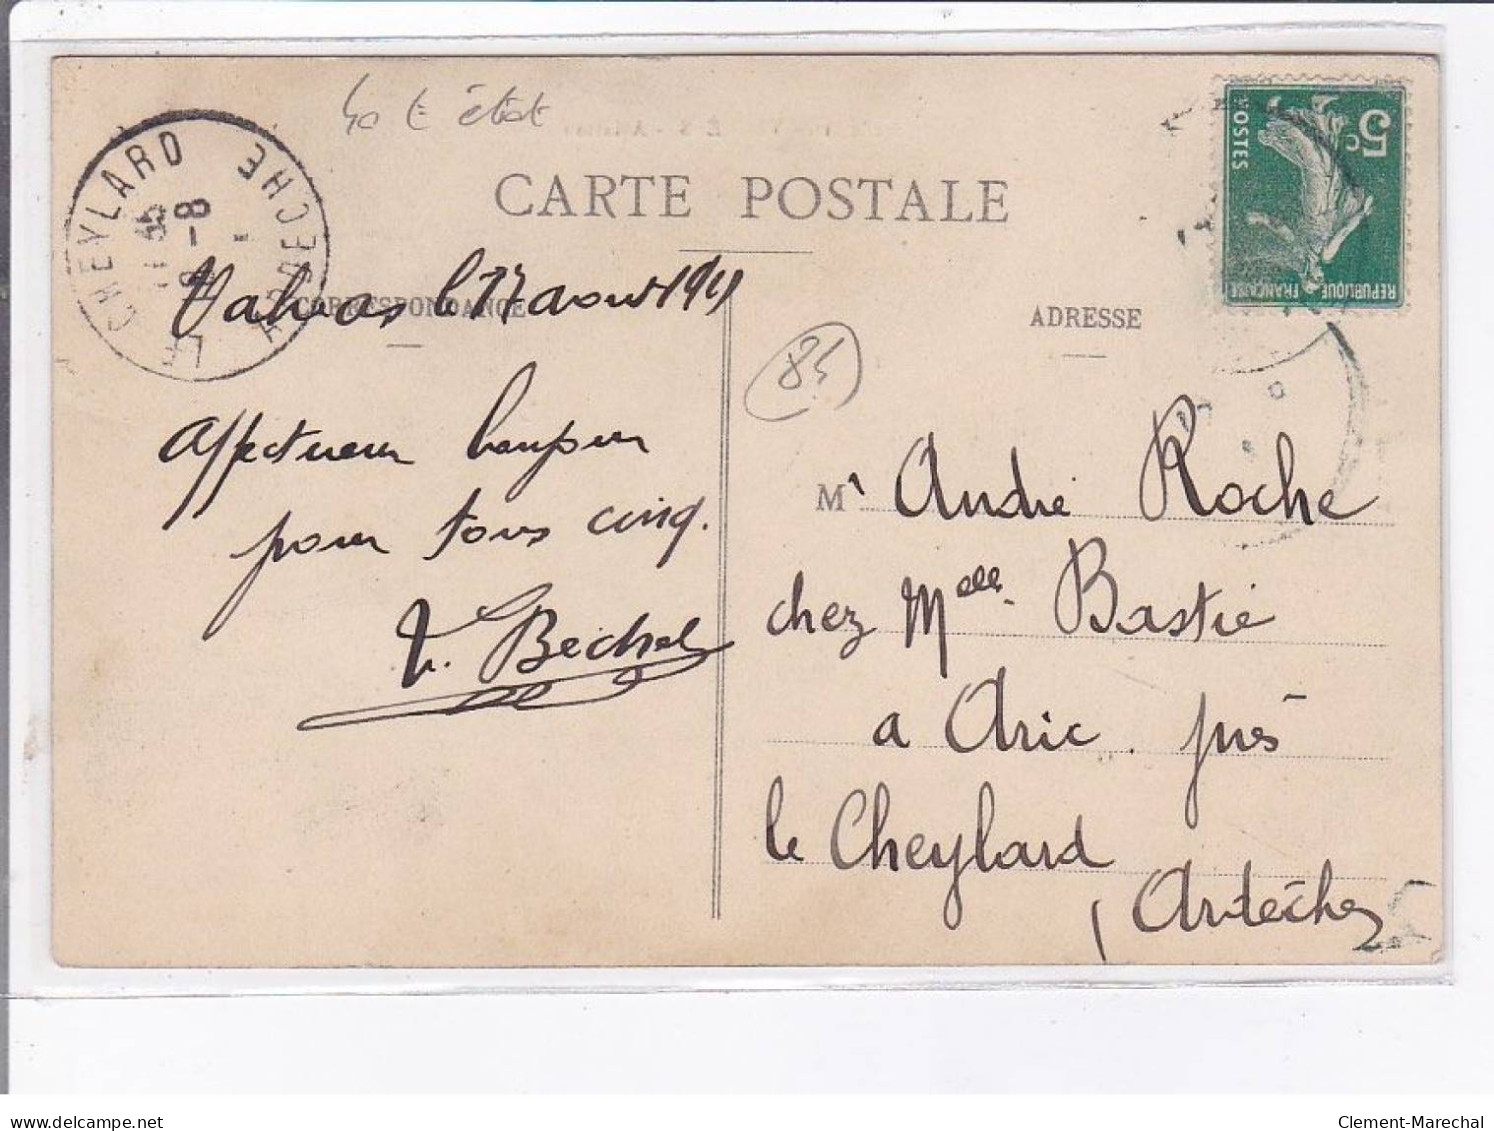 40 € état
CARTE POSTALE
LE CHEYLARD
ARDECHE
18-8
5c
POSTES
REPUBLIQUE FRANÇAISE
CORRESPONDANCE
ADRESSE
Valvas le 17 aout 1911
85
Affectueux bonjour
pour tous cinq.
Bechel
Mr André Roche
chez Melle. Bastie
a Aric. près
le Cheylard
(Ardèche)
www.delcampe.net
Clement-Marechal